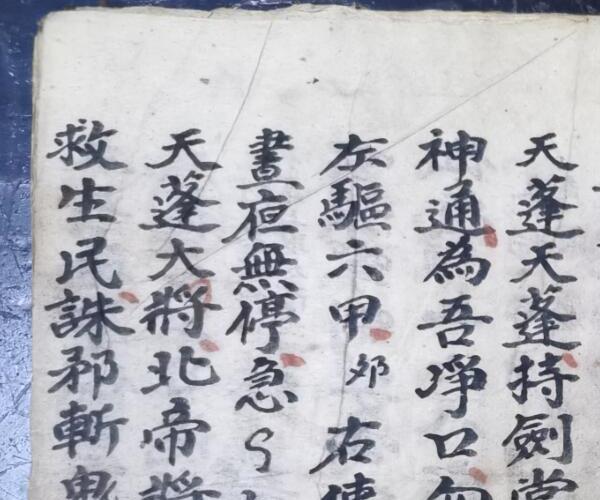 天蓬天蓬持劍當
神通為吾淨口
左驅六甲卯右
晝夜無停急
天蓬大將北帝將
救生民誅邪斬鬼